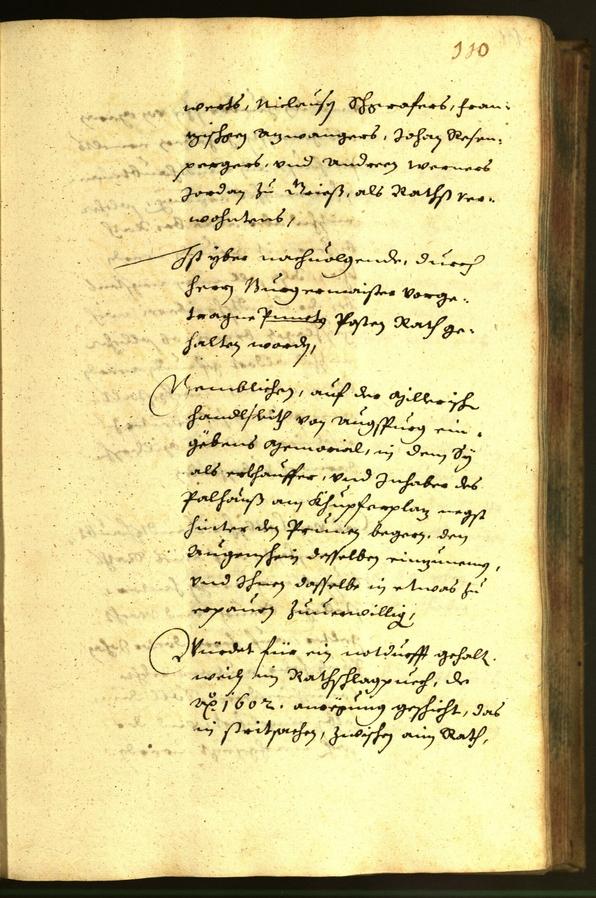 110
werts, Niclausn Schrafers, Fran-
zischen Anwangers, Johan Rosen-
pergers, und Andreen Werners
Jordan zu Grieß, als Raths ver-
wohntens,
Ist yber nachuolgende, durch
herrn Burgermaister vorge-
tragne Puncta Posten Rath ge-
halten worden,
Nemblichen, auf der
handlsleith von Augspurg ein-
gebens Memorial, in dem Sy
als erkhauffer, und Inhaber des
Palhauß am Khupferplaz negst
hinter den Prunen begern, den
Augenschein desselben einzunemen,
und Ihnen dasselbe in etwas zu
erpauen zuuerwilligen,
Würdet für ein notdurfft gehalten
weiln im Rathschlagpuech, de
Ao 1602. anregung geschicht, das
in stritsachen, zwischen aim Rath,